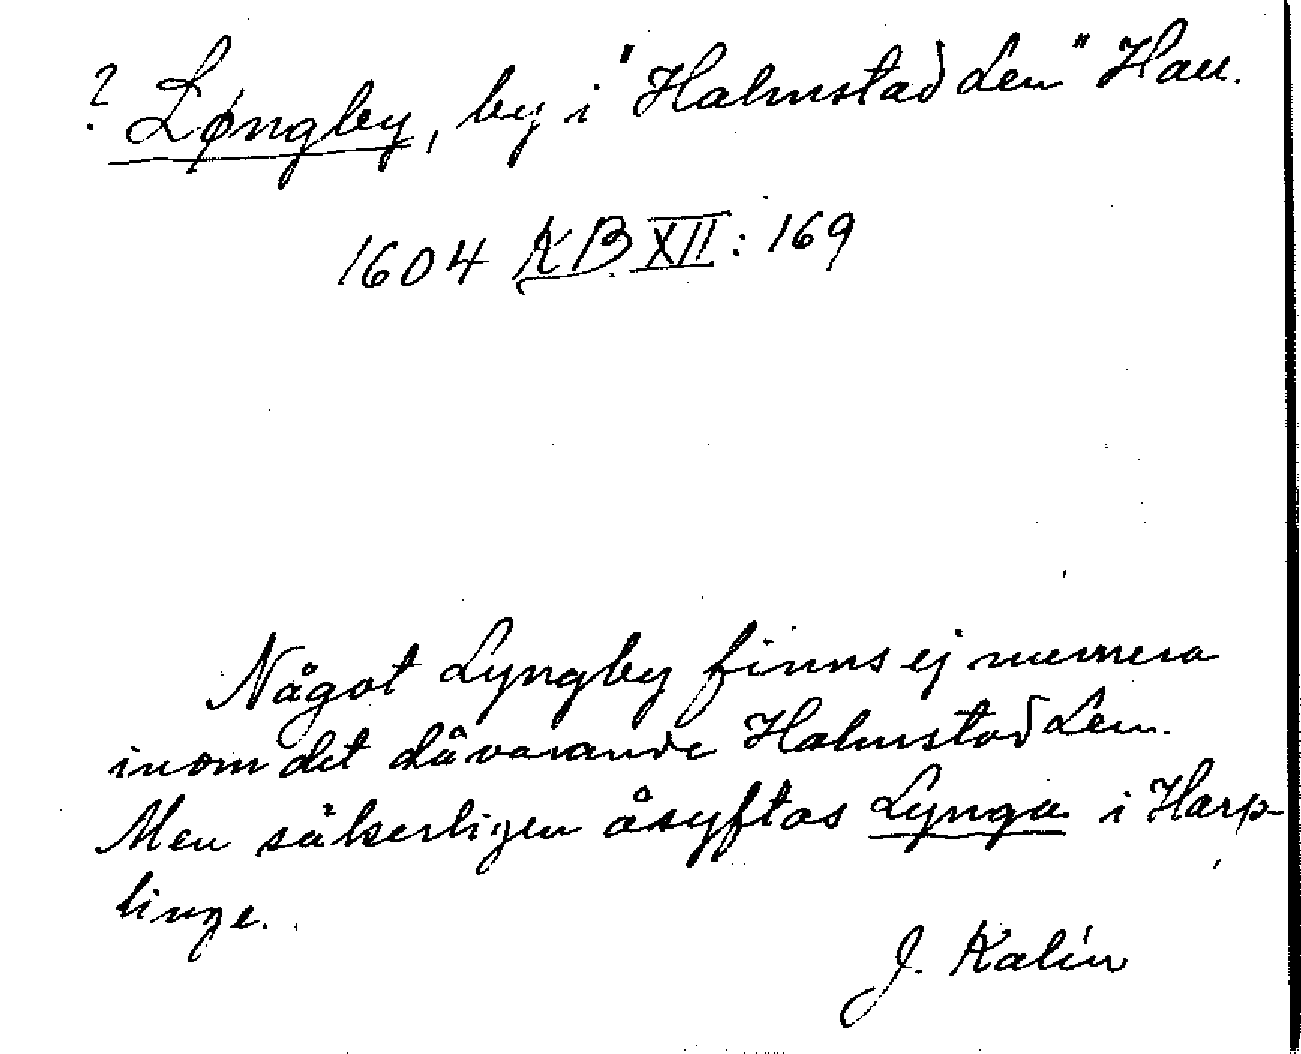 ? Løngby, by i "Halmstad Len" Hall.
1604 KB XII: 169
Något Lyngby finns ej numera
inom det dåvarande Halmstad Len.
Men säkerligen åsyftas Lynga i Harp-
linge.
J. Kalén